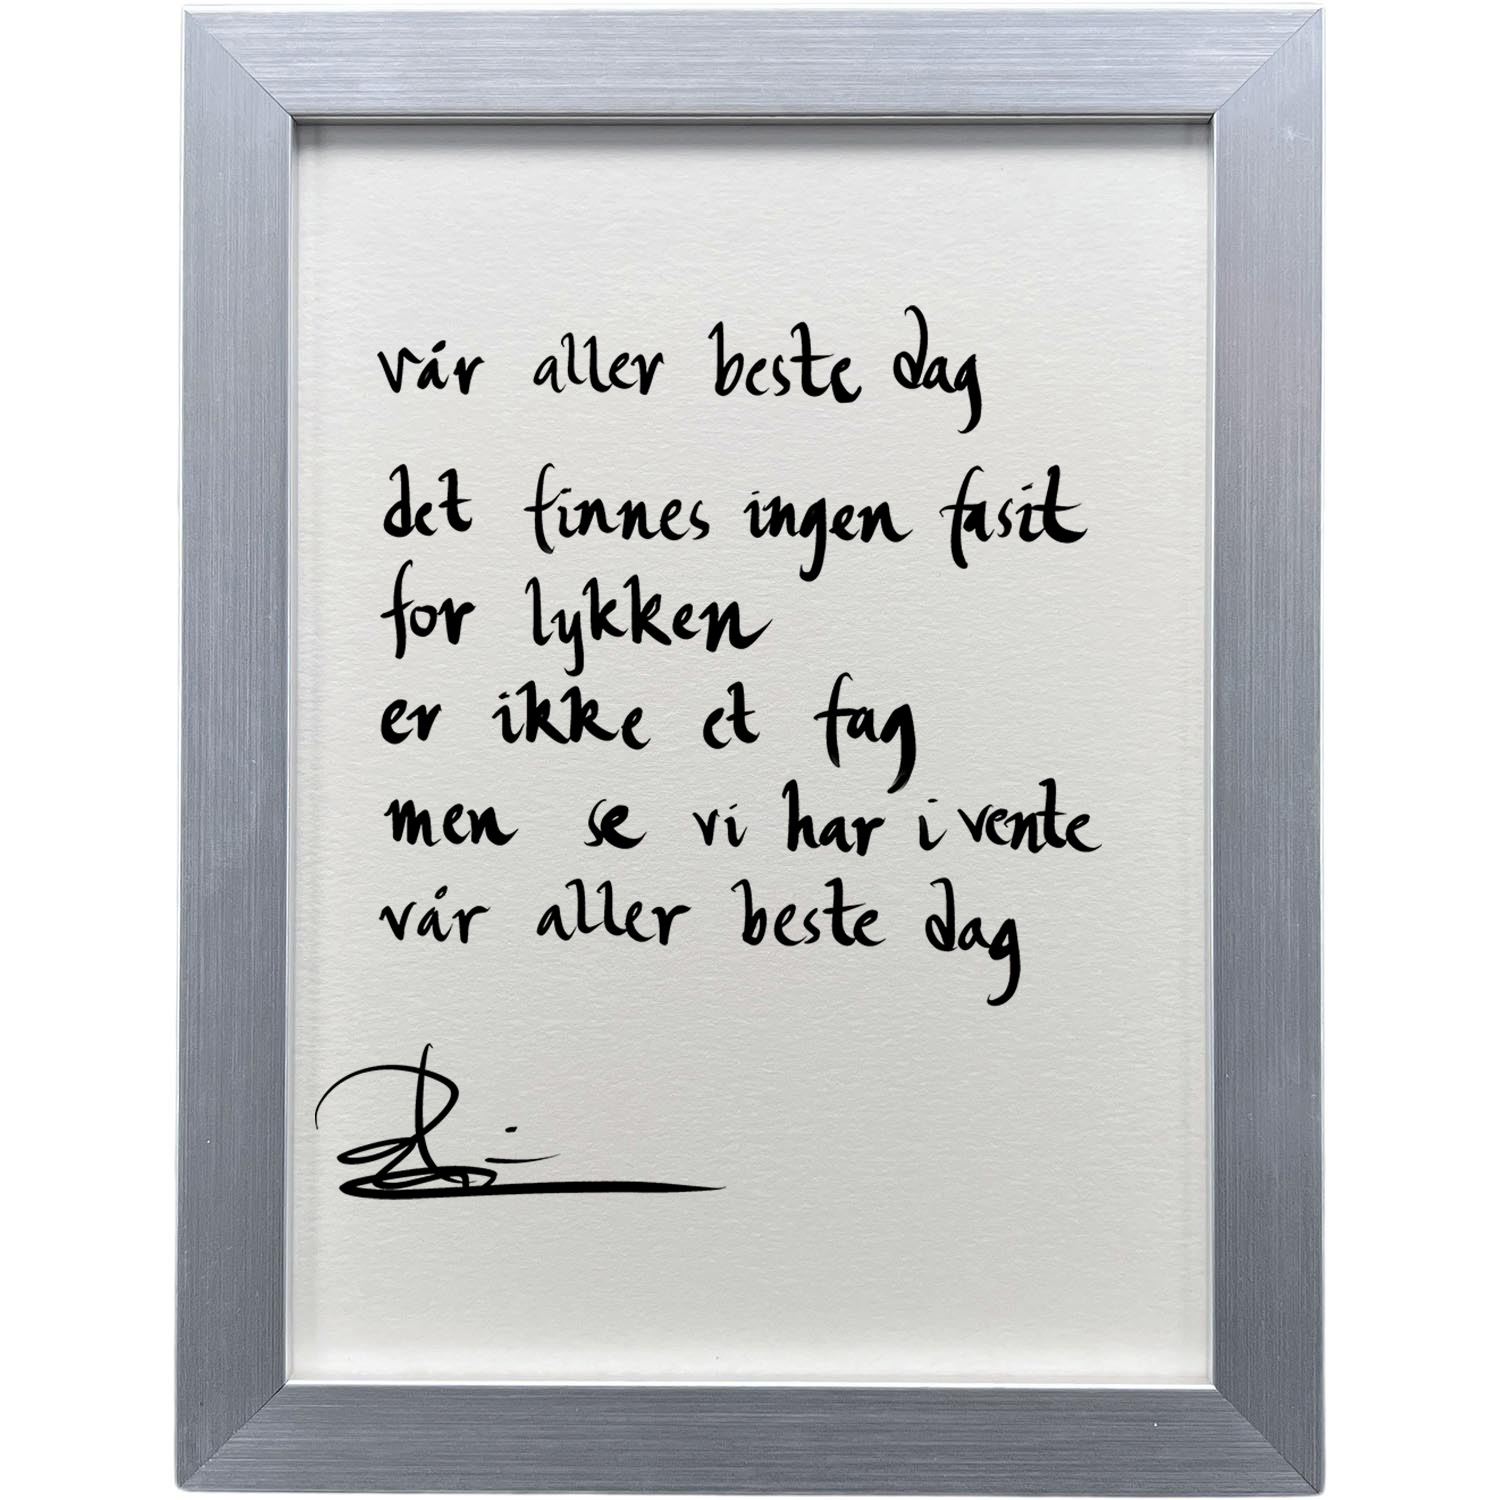 vår aller beste dag
det finnes ingen fasit
for lykken
er ikke et fag
men se vi har i vente
vår aller beste dag